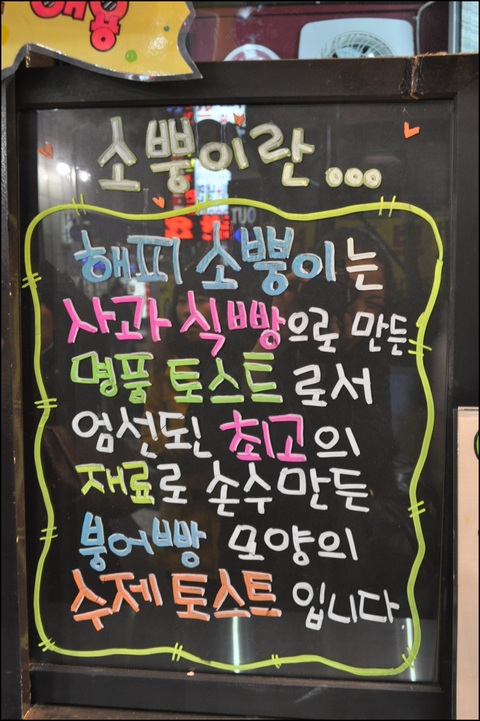 소뿡이란...
해피 소뿡이는
사과 식빵으로 만든
명품 토스트로서
엄선된 최고의
재료로 손수만든
붕어빵 모양의
수제 토스트 입니다